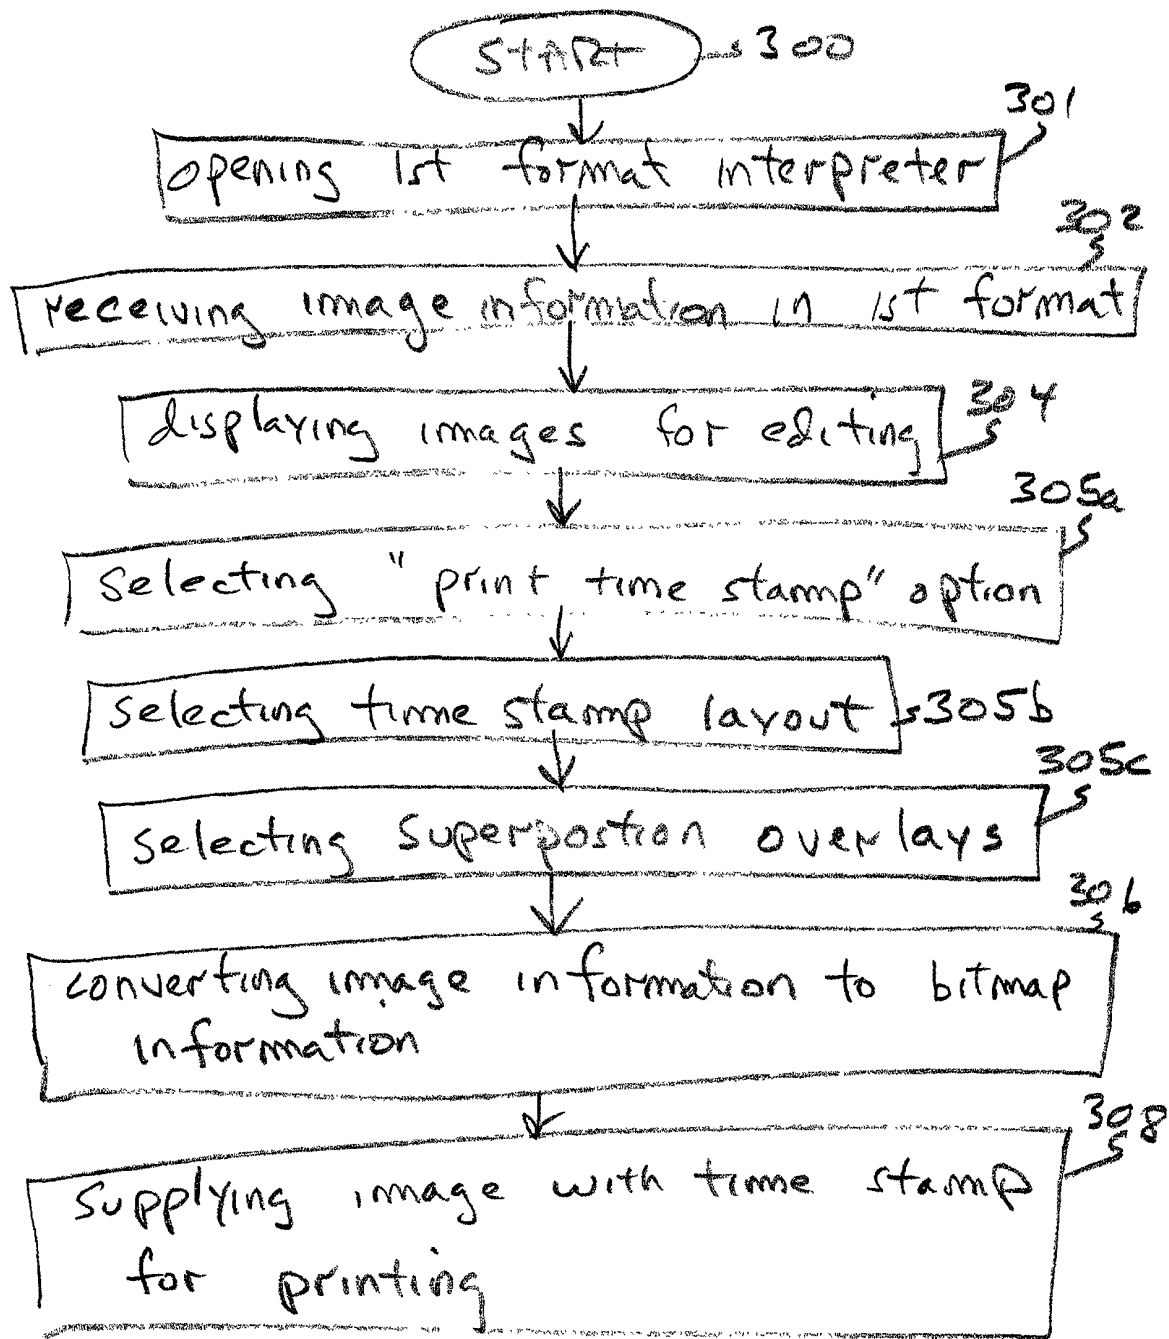 START 300
301
opening 1st format interpreter
302
receiving image information in 1st format
displaying images for editing 304
305a
selecting "print time stamp" option
selecting time stamp layout 305b
305c
selecting superpostion overlays
306
converting image information to bitmap
information
308
supplying image with time stamp
for printing